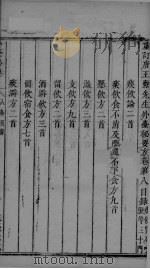 重訂唐王燾先生外臺秘要方卷第八目錄
痰飲論二首
痰飲食不消及嘔逆不下食方九首
懸飲方二首
溢飲方三首
支飲方九首
留飲方二首
酒澼飲方三首
留飲宿食方七首
痰澼方二首